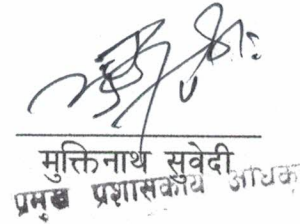 मुक्तिनाथ सुवेदी
प्रमुख प्रशासकीय